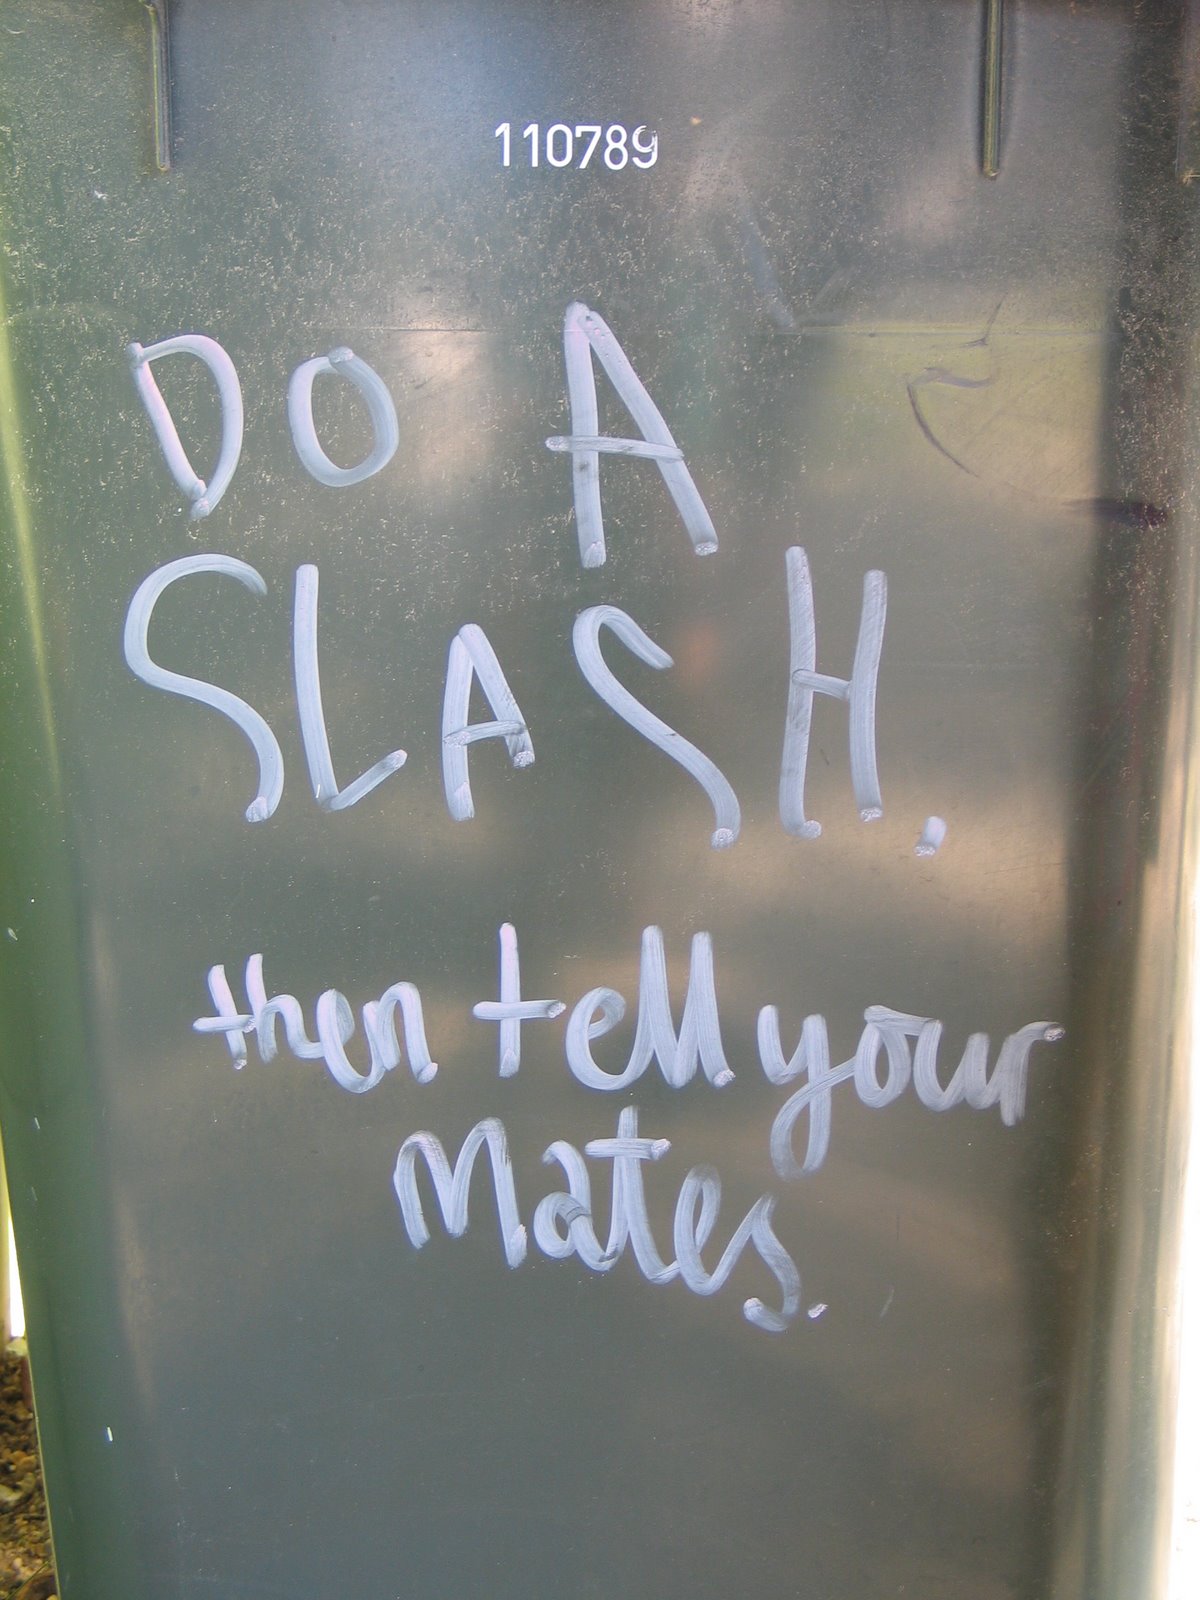 110789
DO A
SLASH.
then tell your
Mates.